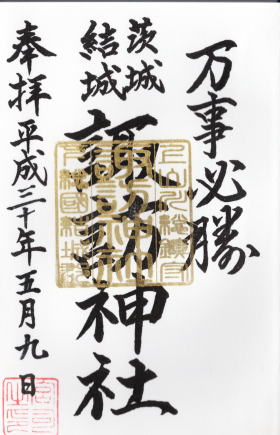 万事必勝
茨城
結城
諏訪神社
奉拝 平成三十年五月九日